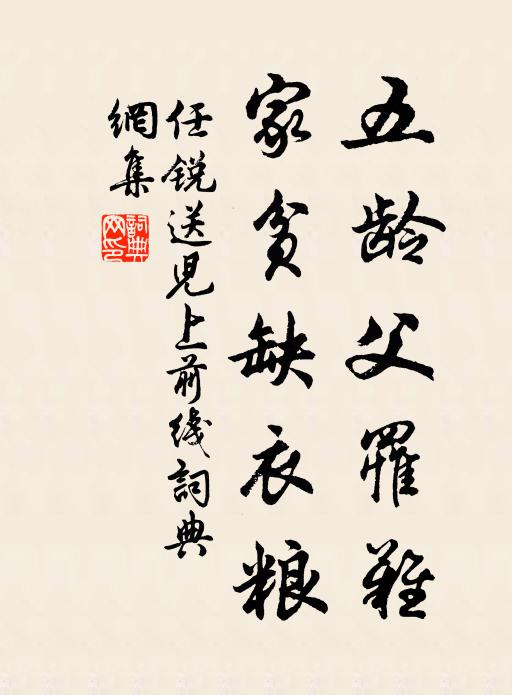 五龄父罹难
家贫缺衣粮
任锐送児上前线詞典
網集
詞典網印